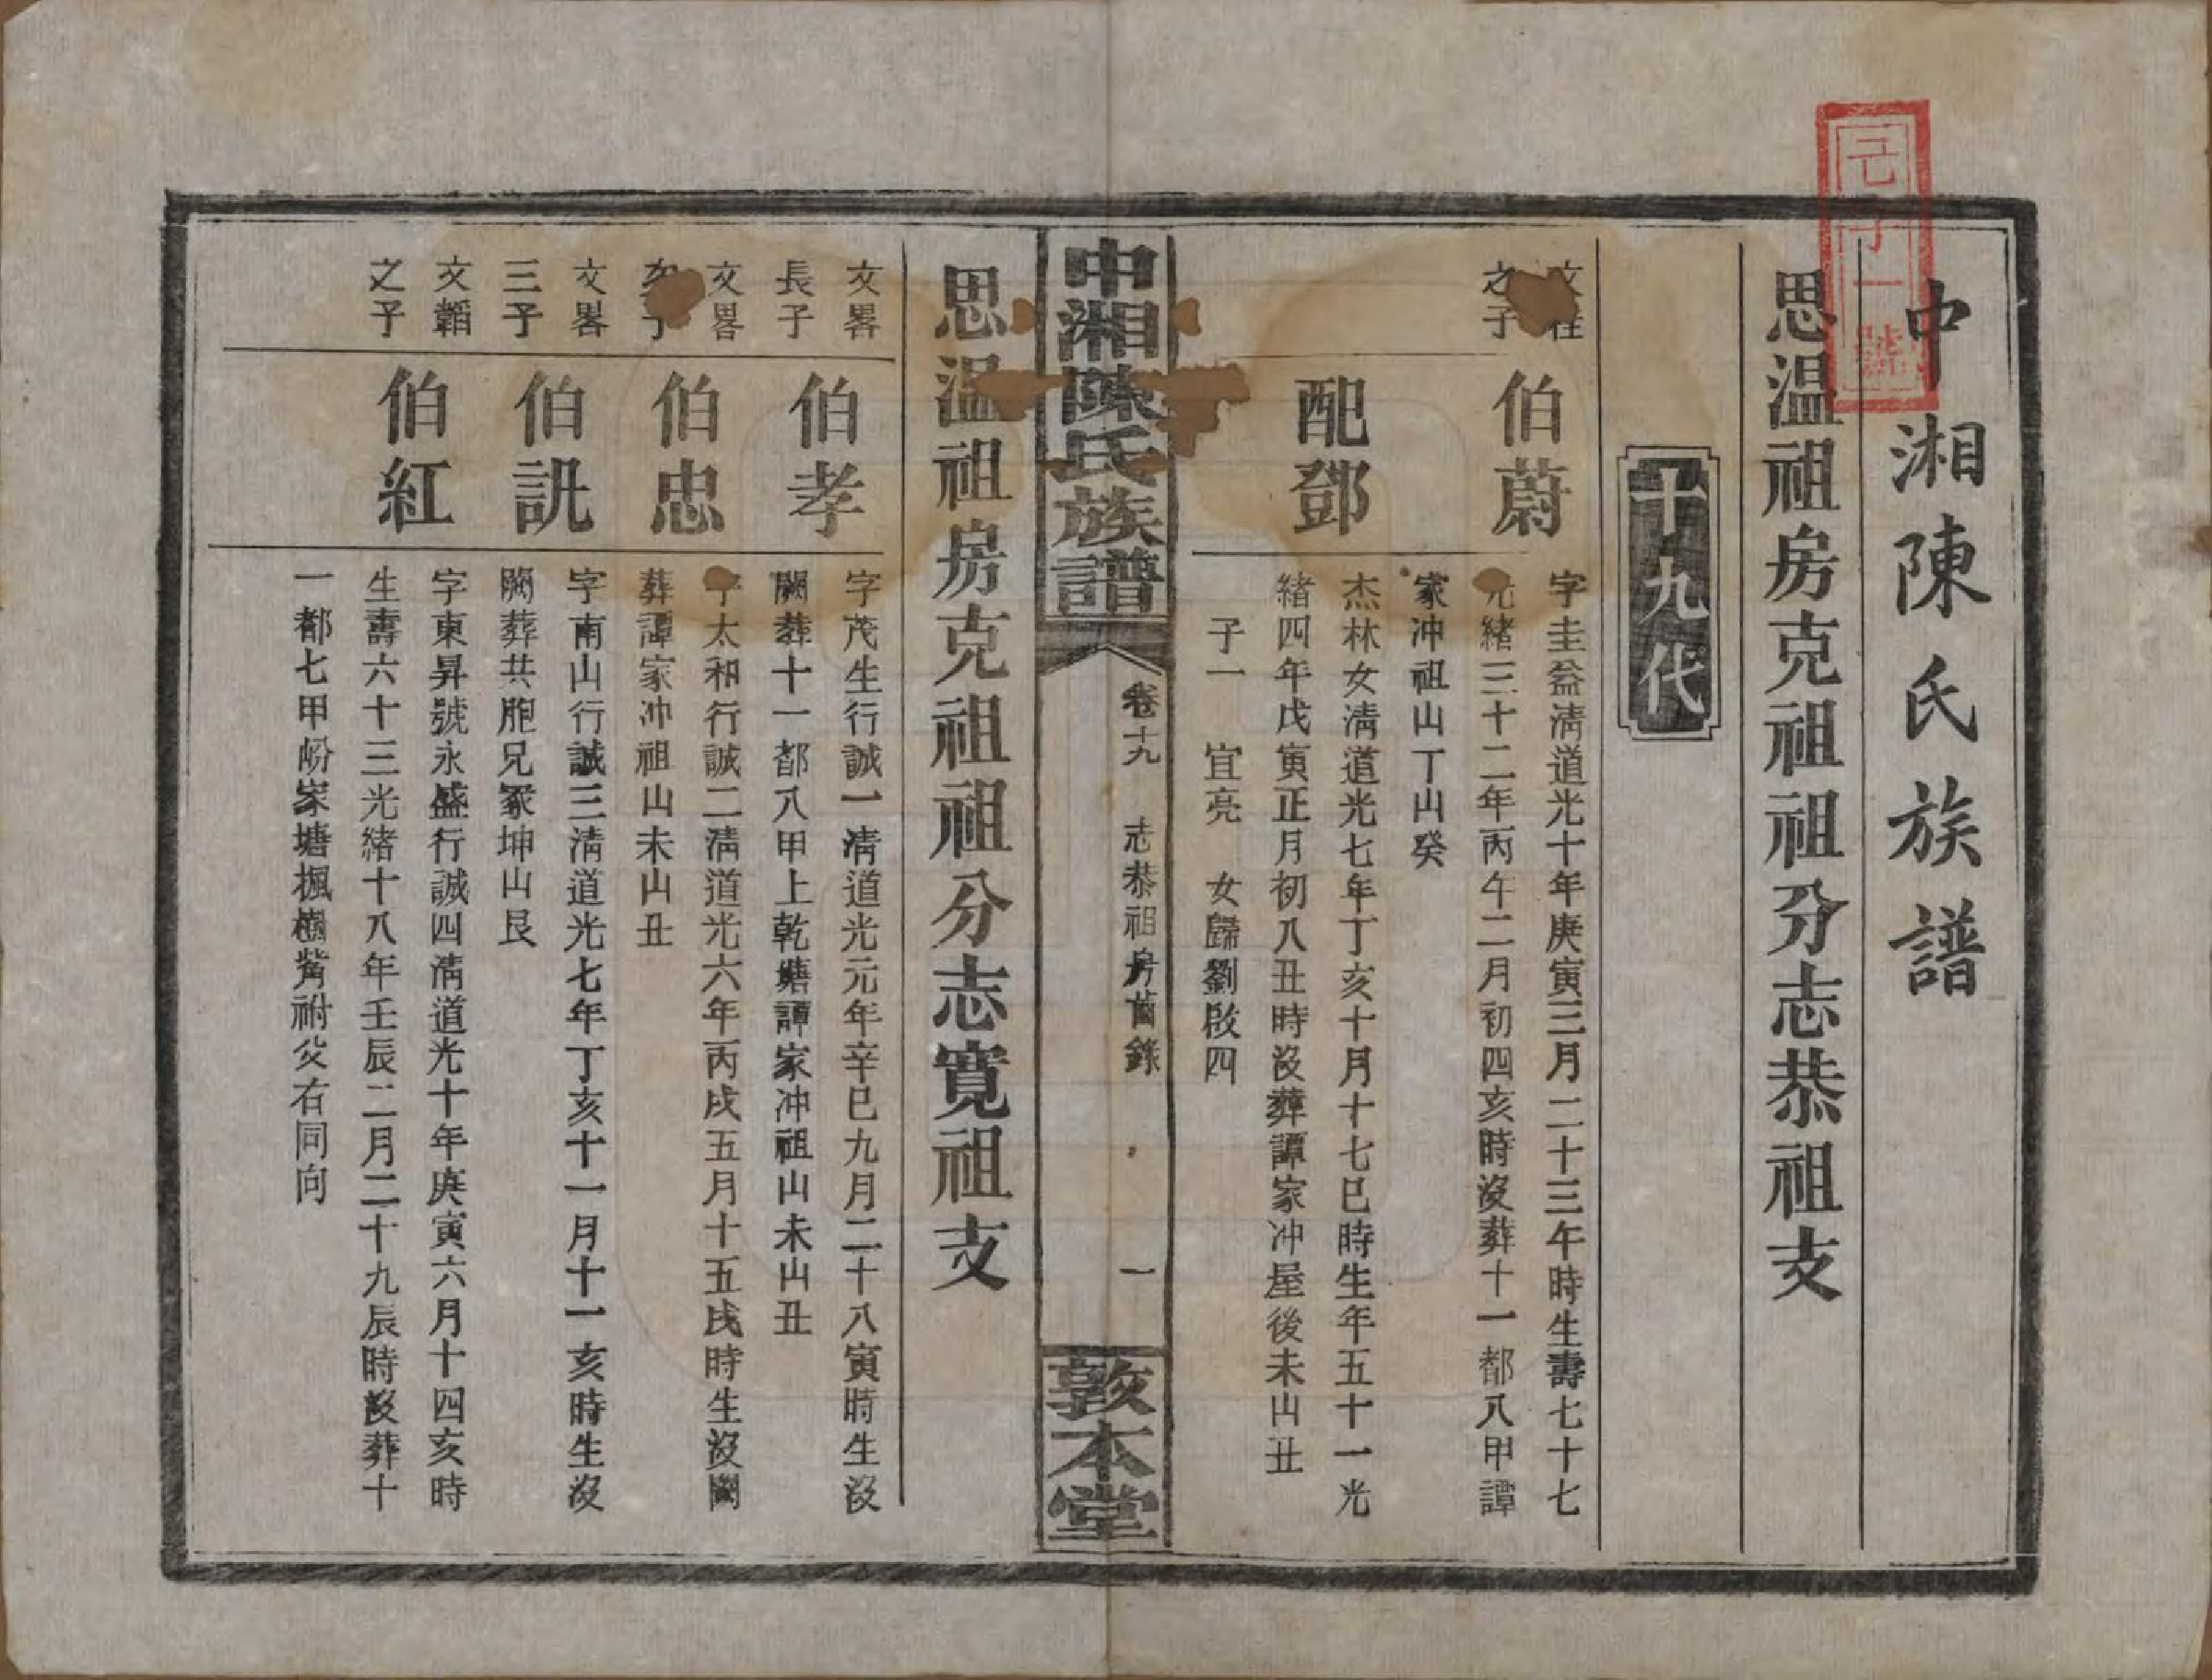 中湘陳氏族譜
思温祖房克祖祖分志恭祖支
十九代
之子
伯蔚
字圭益清道光十年庚寅三月二十三午時生壽七十七
光緒三十二年丙午二月初四亥時沒葬十一都八甲譚
家冲祖山丁山癸
配鄧
杰林女清道光七年丁亥十月十七巳時生年五十一光
緒四年戊寅正月初八丑時沒葬譚家冲屋後未山丑
子一 宜亮 女歸劉啟四
中湘陳氏族譜
卷十九 志恭祖房齒錄 一
敦本堂
思温祖房克祖祖分志寬祖支
文畧
長子
伯孝
字茂生行誠一清道光元年辛巳九月二十八寅時生沒
闕葬十一都八甲上乾塘譚家冲祖山未山丑
文畧
伯忠
字太和行誠二清道光六年丙戌五月十五戌時生沒闕
葬譚家冲祖山未山丑
文畧
三子
伯訊
字南山行誠三清道光七年丁亥十一月十一亥時生沒
闕葬共胞兄冢坤山艮
文韜
之子
伯紅
字東昇號永盛行誠四清道光十年庚寅六月十四亥時
生壽六十三光緒十八年壬辰二月二十九辰時沒葬十
一都七甲㟃家塘楓樹觜祔父右同向
號